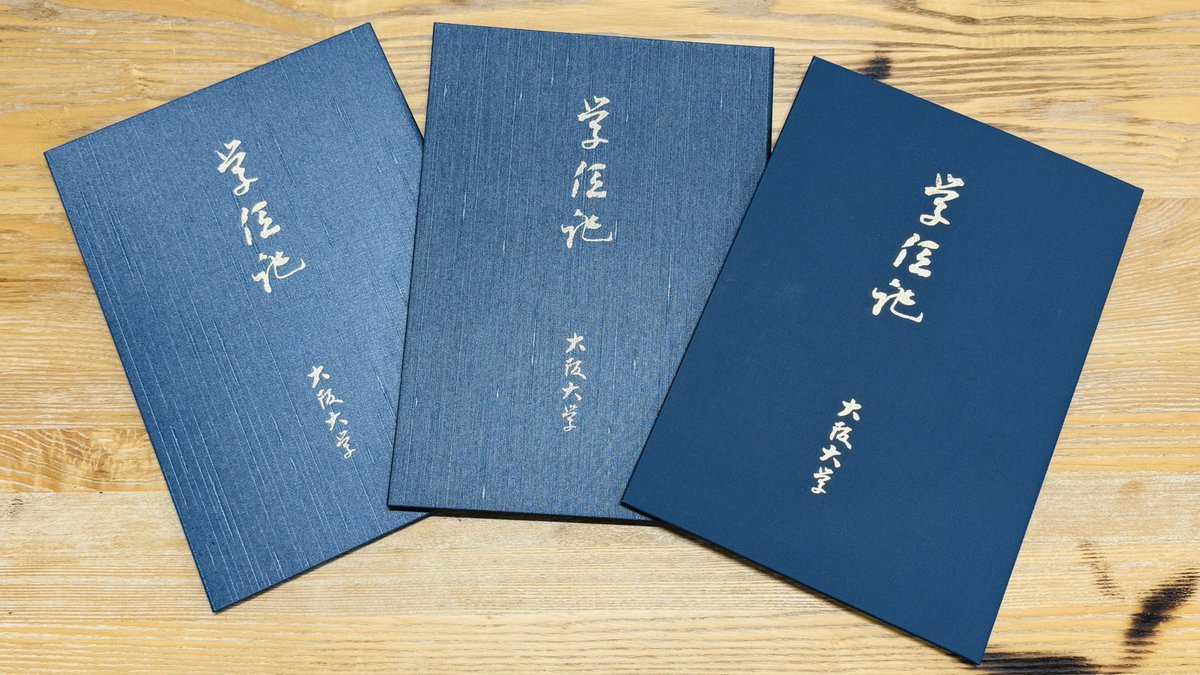 学位記
大阪大学
学位記
大阪大学
学位記
大阪大学